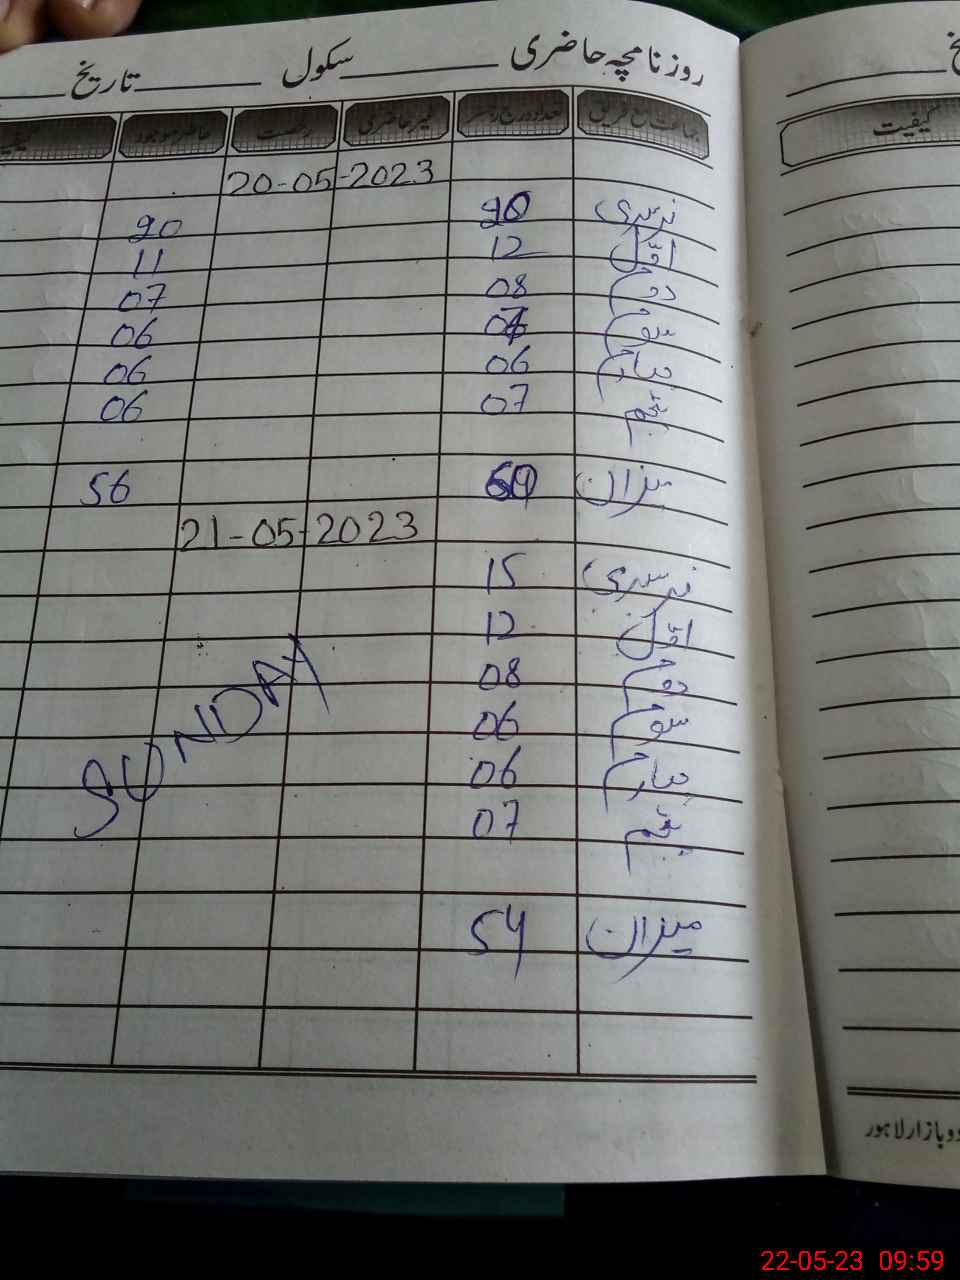 روزنامچہ حاضری ______ سکول ______ تاریخ ______
جماعت مع فریق تعداد درج رجسٹر غیر حاضری رخصت حاضر موجود
20-05-2023
نرسری 20 20
اوّل 12 11
دوم 08 07
سوم 06
چہارم 06 06
پنجم 07 06
میزان 56
21-05-2023
نرسری 15
اوّل 12
دوم 08
سوم 06
چہارم 06
پنجم 07
میزان 54
SUNDAY
کیفیت
و بازار لاہور
22-05-23 09:59